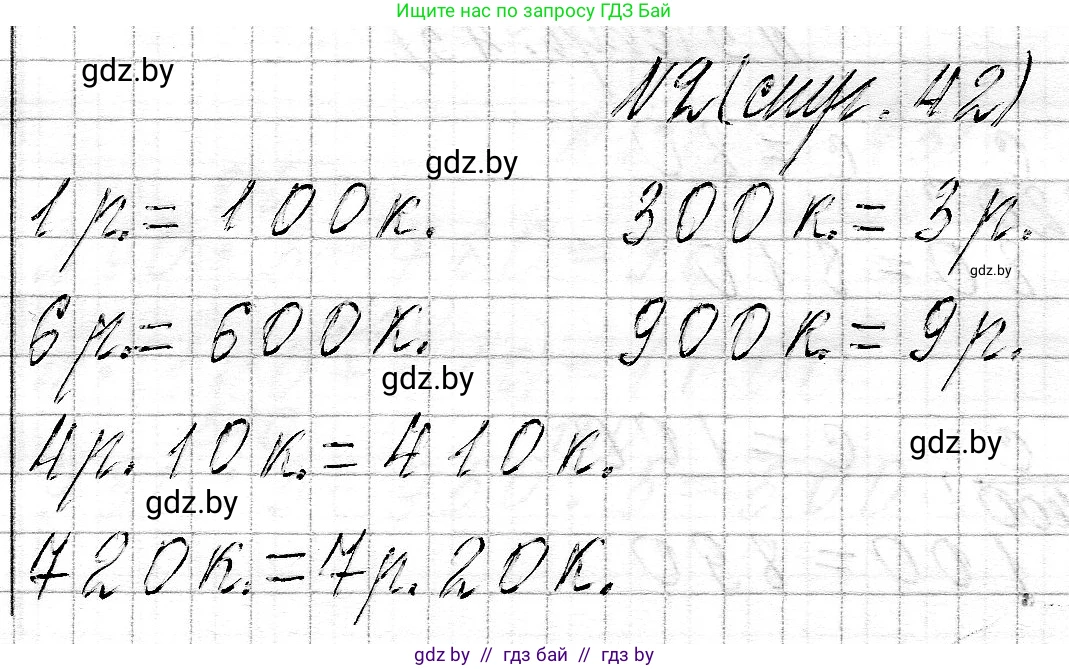 Ищите нас по запросу ГДЗ Бай
gdz.by
№2 (стр. 42)
gdz.by
1 р. = 100 к. 300 к. = 3 р.
gdz.by
6 р. = 600 к. 900 к. = 9 р.
gdz.by
4 р. 10 к. = 410 к.
gdz.by
gdz.by
720 к. = 7 р. 20 к.
gdz.by // гдз бай // гдз by